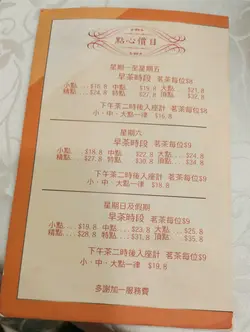 點心價目
星期一至星期五
早茶時段 茗茶每位$8
小點...$16.8 中點 $19.8 大點 $21.8
精點..$24.8 特點 $27.8 頂點 $32.8
下午茶二時後入座計 茗茶每位$8
小、中、大點一律 $16.8
星期六
早茶時段 茗茶每位$9
小點...$18.8 中點...$21.8 大點 $24.8
精點..$27.8 特點..$30.8 頂點 $34.8
下午茶二時後入座計 茗茶每位$9
小、中、大點一律 $18.8
星期日及假期
早茶時段 茗茶每位$9
小點...$19.8 中點...$22.8 大點...$25.8
精點..$28.8 特點..$31.8 頂點..$35.8
下午茶二時後入座計 茗茶每位$9
小、中、大點一律 $19.8
多謝加一服務費